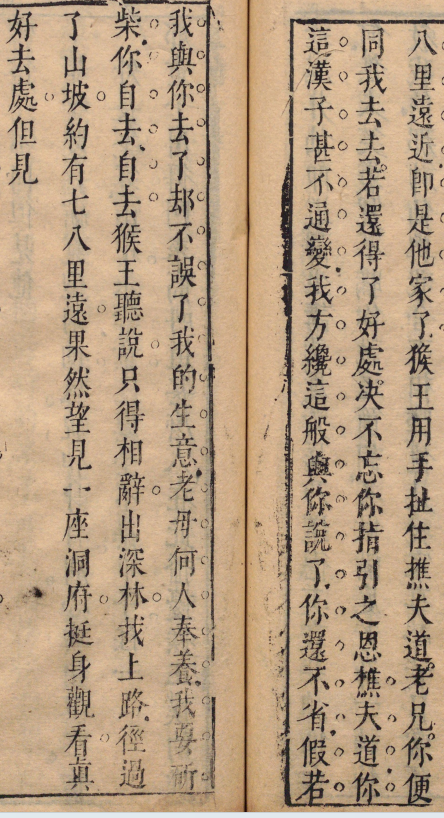 八里遠近卽是他家了猴王用手扯住樵夫道老兄你便
同我去去若還得了好處决不忘你指引之恩樵夫道你
這漢子甚不通變我方纔這般與你說了你還不省假若
我與你去了却不誤了我的生意老母何人奉養我要斫
柴你自去自去猴王聽說只得相辭出深林找上路徑過
了山坡約有七八里遠果然望見一座洞府挺身觀看真
好去處但見